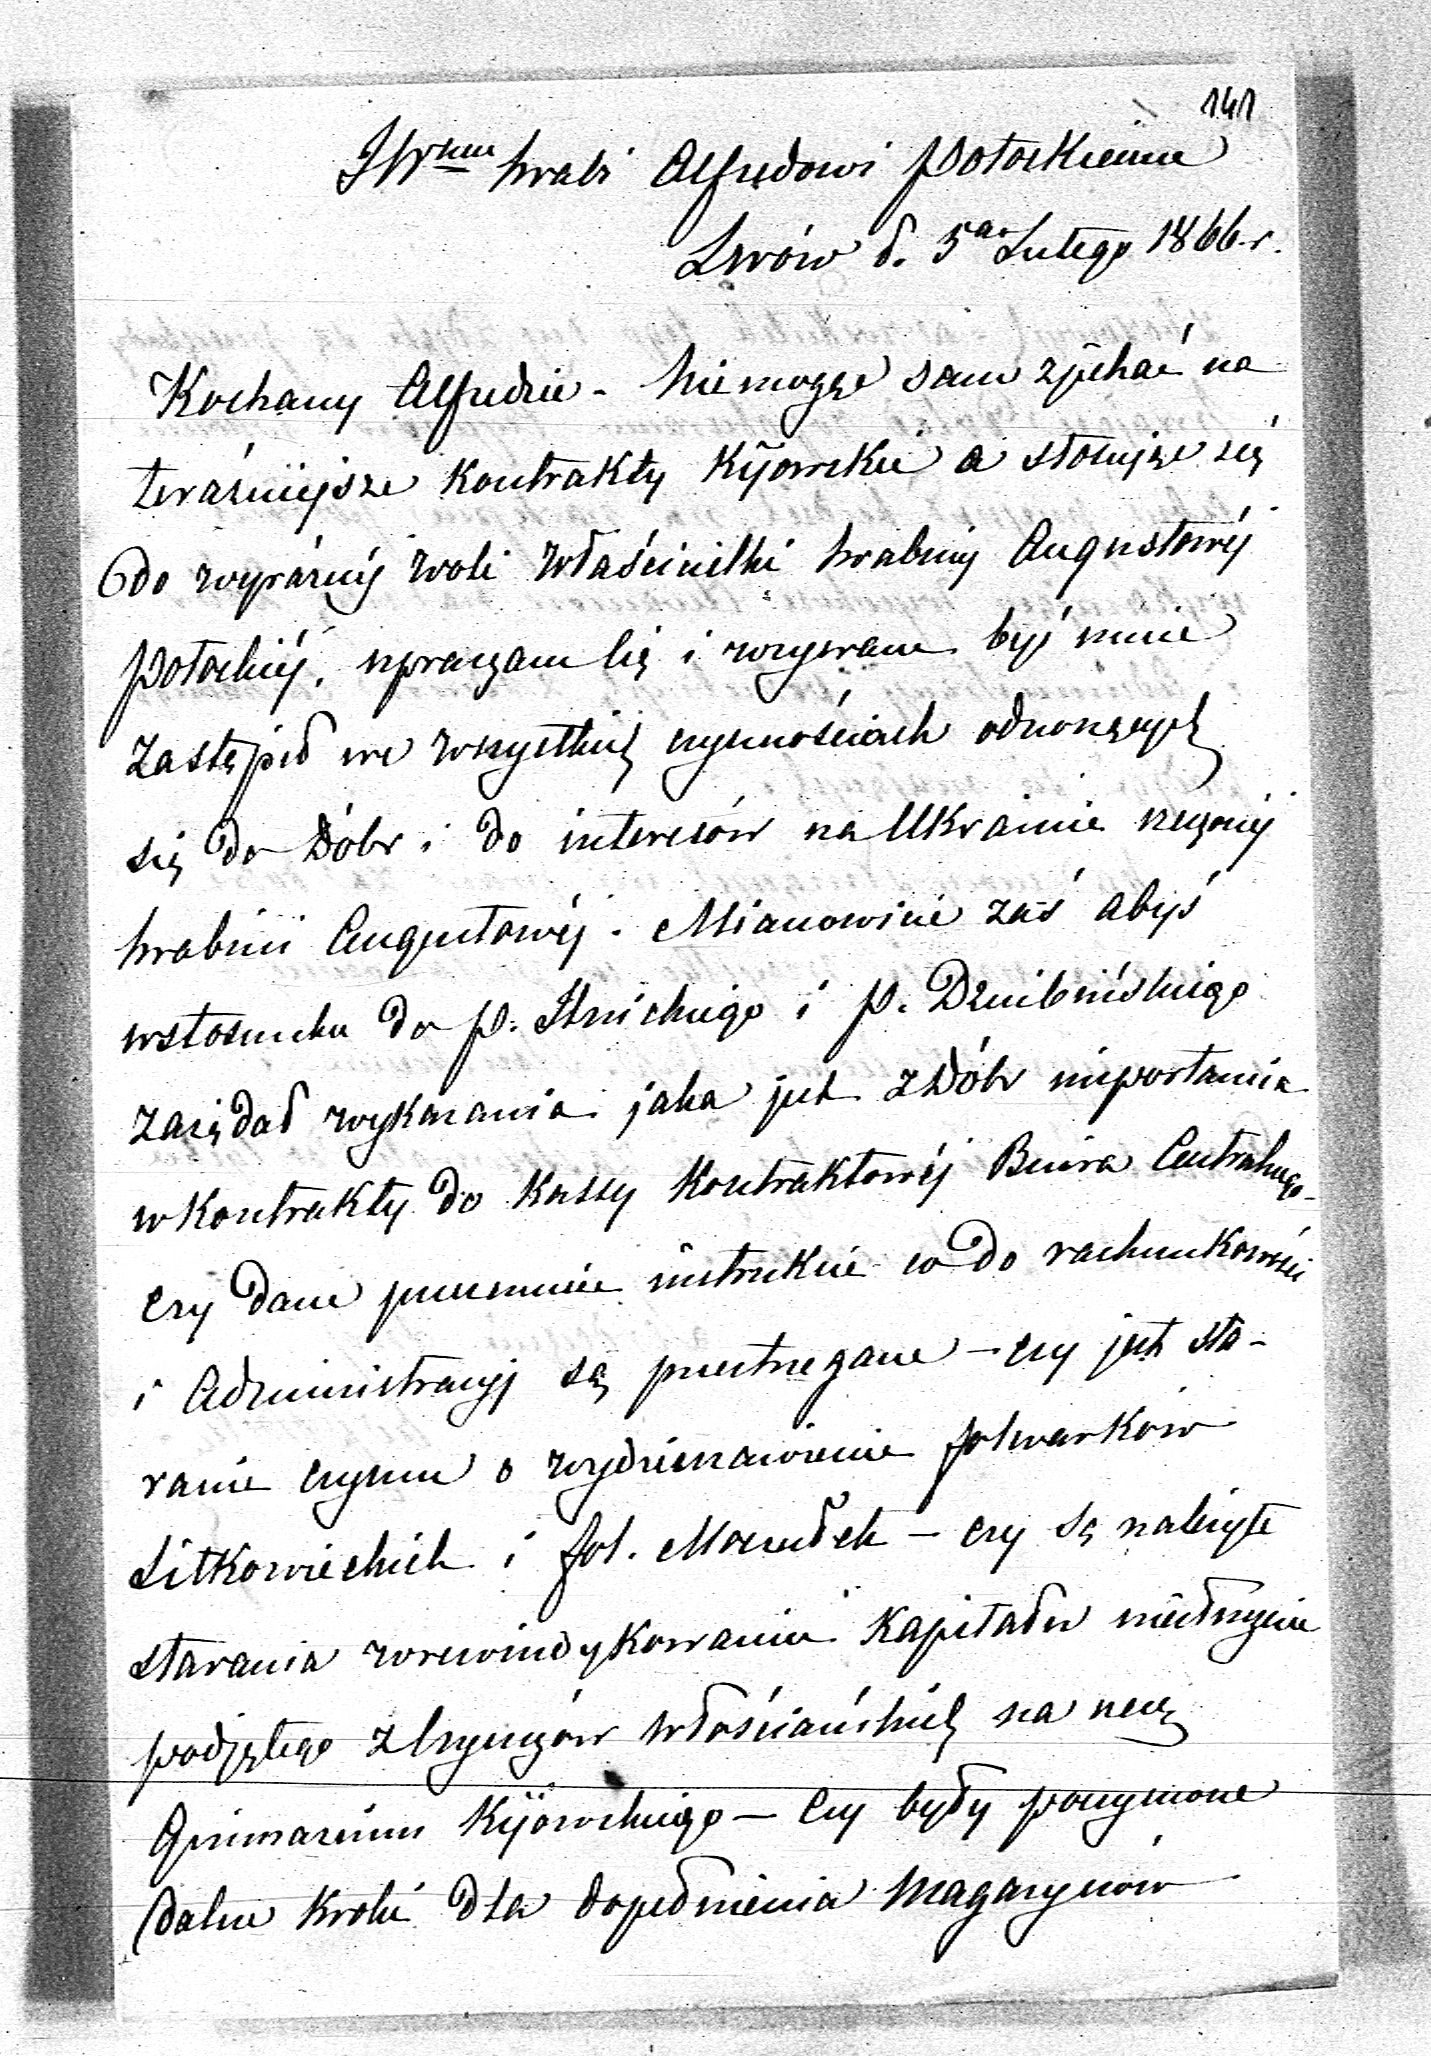 141
JW<sup>mu</sup> hrabi Alfredowi Potockiemu
Lwów d. 5<sup>go</sup> Lutego 1866 r.
Kochany Alfredzie - Niemogąc sam zjechać na
teraźniejsze Kontrakty Kijowskie a stosując się
do wyraźnéj woli właścicielki hrabiny Augustowéj
Potockiéj, upraszam Cię i wzywam byś mnie
zastąpił we wszystkich czynnościach odnoszących
się do Dóbr i do interesów na Ukrainie rzeczonéj
hrabini Augustowéj. Mianowicie zaś abyś
wstosunku do P. Ilnickiego i P.
zażądał wykazania jaka jest z Dóbr importancia
w Kontrakty do Kassy Kontraktowéj Biura Centralnego -
czy dane przezemnie instrukcie co do rachunkowości
i Administracyj są przestrzegane - czy jest sta-
ranie czynne o wydzierzawienie folwarków
Sitkowieckich i fol. - czy są należyte
starania zrewindykowania Kapitału niesłusznie
podjętego z czynszów włościańskich na rzecz
Gimnazium Kijowskiego - Czy były poczynione
dalsze Kroki dla dopełnienia Magazynów